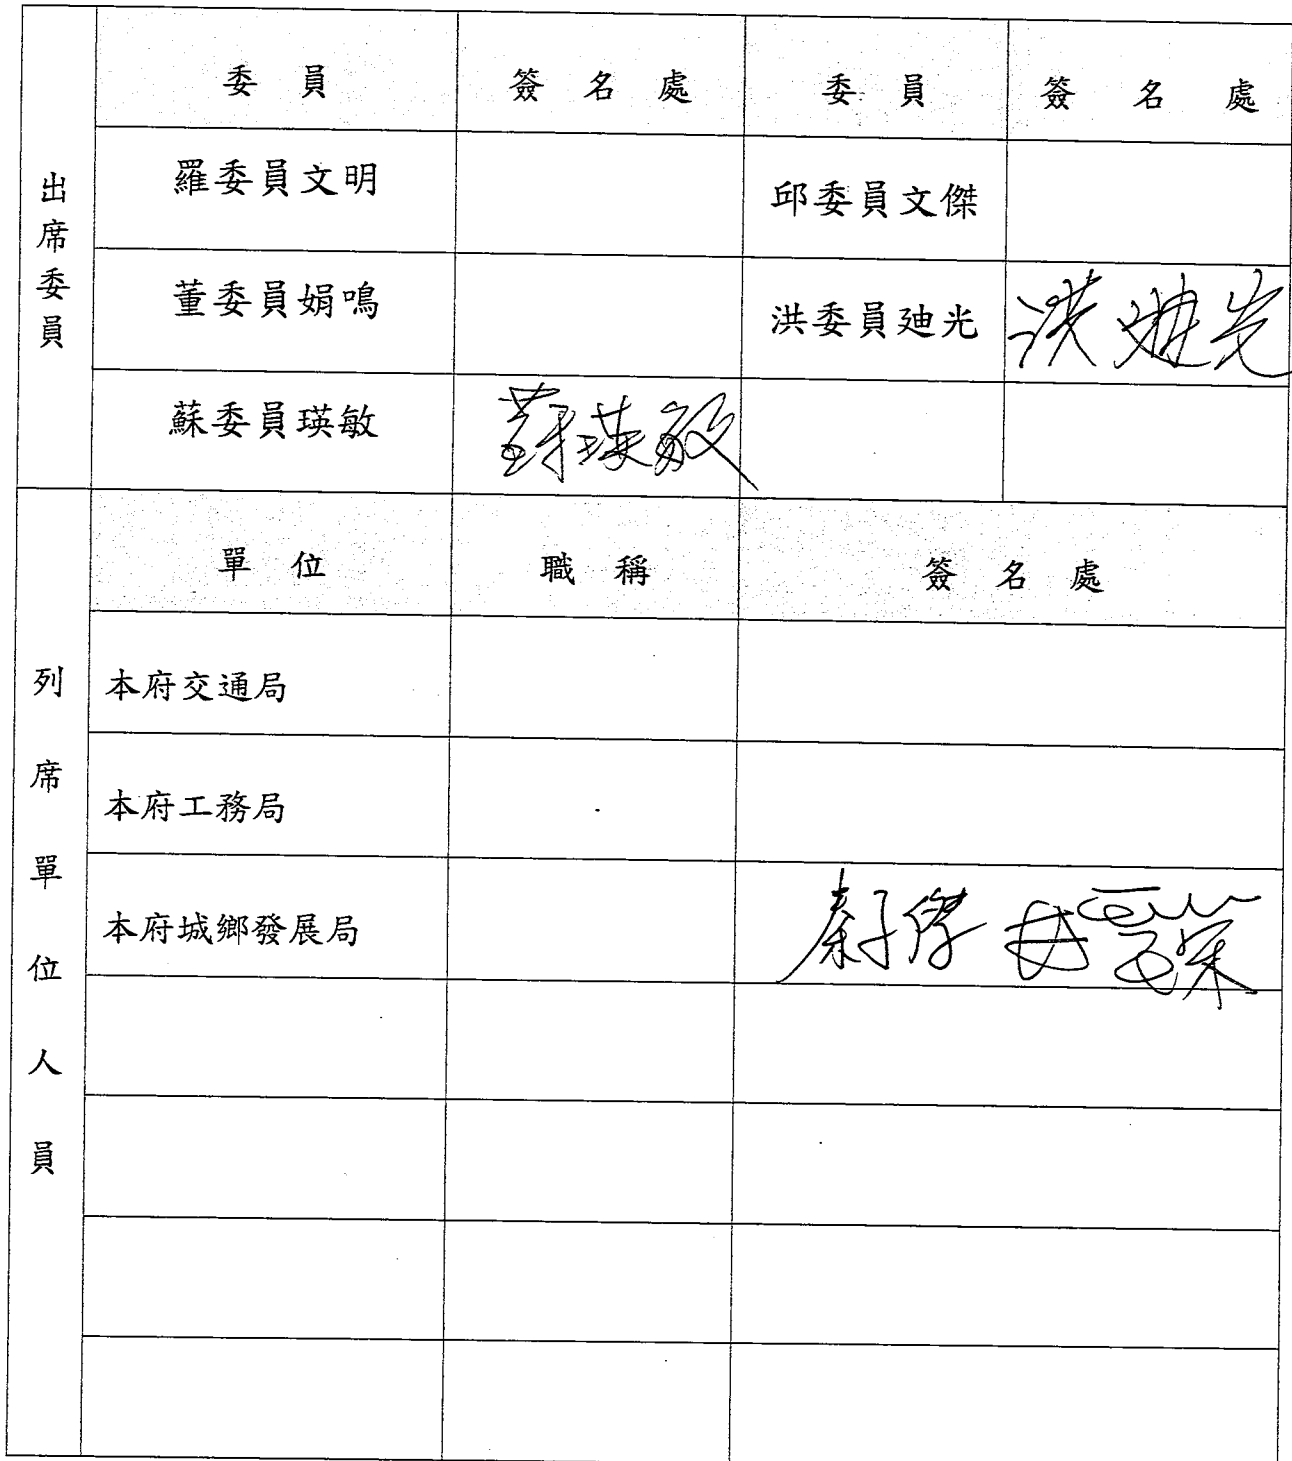 出席委員
委員 簽名處 委員 簽名處
羅委員文明 邱委員文傑
董委員娟鳴 洪委員廸光 洪廸光
蘇委員瑛敏 蘇瑛敏
列席單位人員
單位 職稱 簽名處
本府交通局
本府工務局
本府城鄉發展局 秦子傑